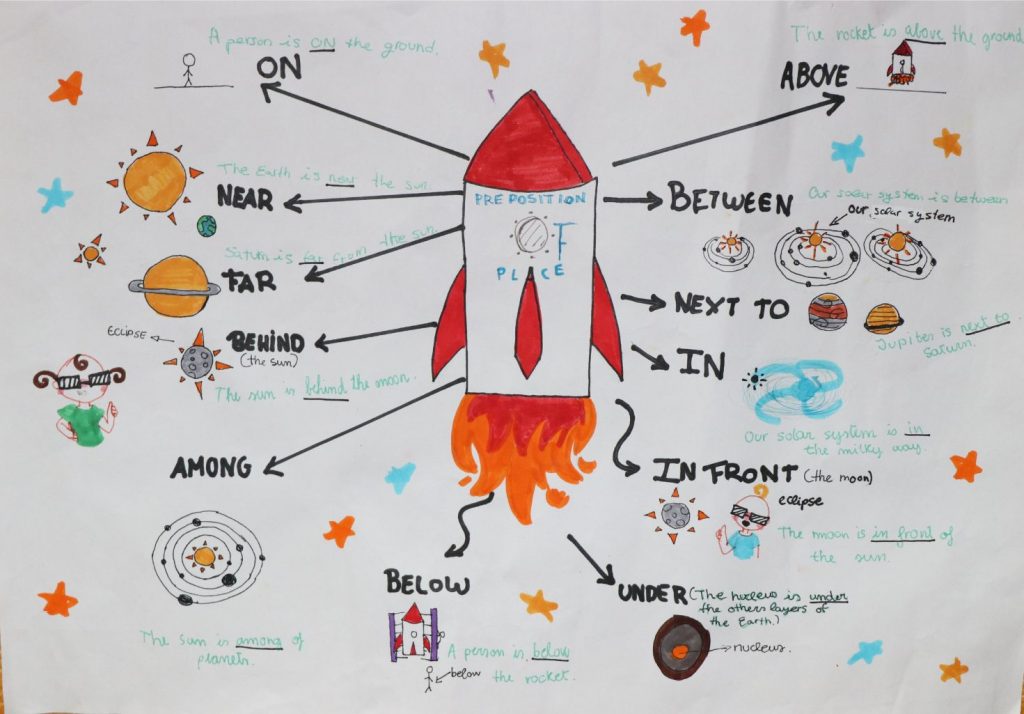 A person is ON the ground.
ON
The rocket is above the ground
ABOVE
The Earth is near the sun.
NEAR
Saturn is far from the sun.
FAR
ECLIPSE
BEHIND
(the sun)
The sun is behind the moon.
AMONG
The sun is among of
planets.
PREPOSITION
OF
PLACE
BETWEEN
Our solar system is between
our solar system
NEXT TO
Jupiter is next to
saturn.
IN
Our solar system is in
the milky way.
IN FRONT (the moon)
eclipse
The mmoon is in front of
the sun.
BELOW
A person is below
the rocket.
below
UNDER (The nucleus is under
the others layers of
the Earth.)
nucleus.